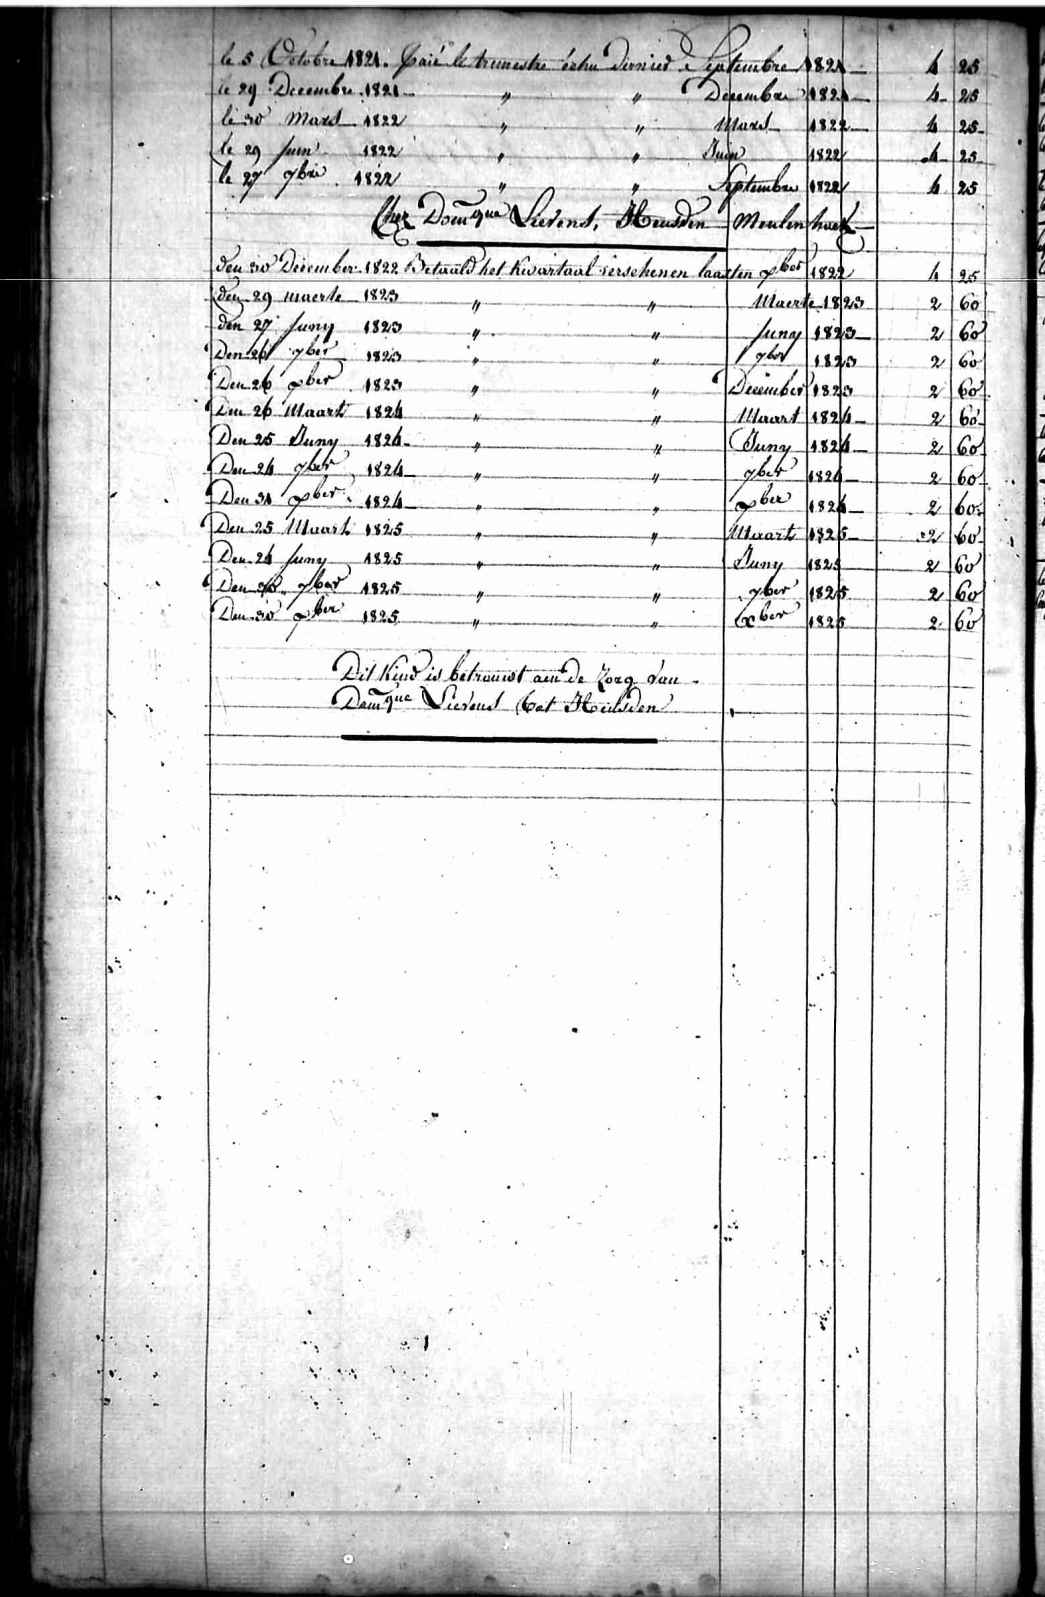 le 5 Octobre 1821. Paié le trimestre échu dernier Septembre 1821 4 25
le 29 Decembre 1821 " " Decembre 1821 4 25
le 30 Mars 1822 " " Mars 1822 4 25
le 29 Juin 1822 " " Juin 1822 4 25
le 27 7bre 1822 " " Septembre 1822 4 25
Chez Domque Lievens, Heusden Meulenhoek
den 30 December 1822 Betaald het Kwartaal verschenen laasten xber 1822 4 25
den 29 maerte 1823 " " Maerte 1823 2 60
den 27 Juny 1823 " " Juny 1823 2 60
Den 26 7ber 1823 " " 7ber 1823 2 60
Den 26 xber 1823 " " December 1823 2 60
Den 26 Maart 1824 " " Maart 1824 2 60
Den 25 Juny 1824 " " Juny 1824 2 60
Den 24 7ber 1824 " " 7ber 1824 2 60
Den 31 xber 1824 " " xber 1824 2 60
Den 25 Maart 1825 " " Maart 1825 2 60
Den 24 Juny 1825 " " Juny 1825 2 60
Den 30 7ber 1825 " " 7ber 1825 2 60
Den 30 xber 1825 " " xber 1825 2 60
Dit Kind is betrouwt aen de Zorg van
Domque Lievens tot Heusden